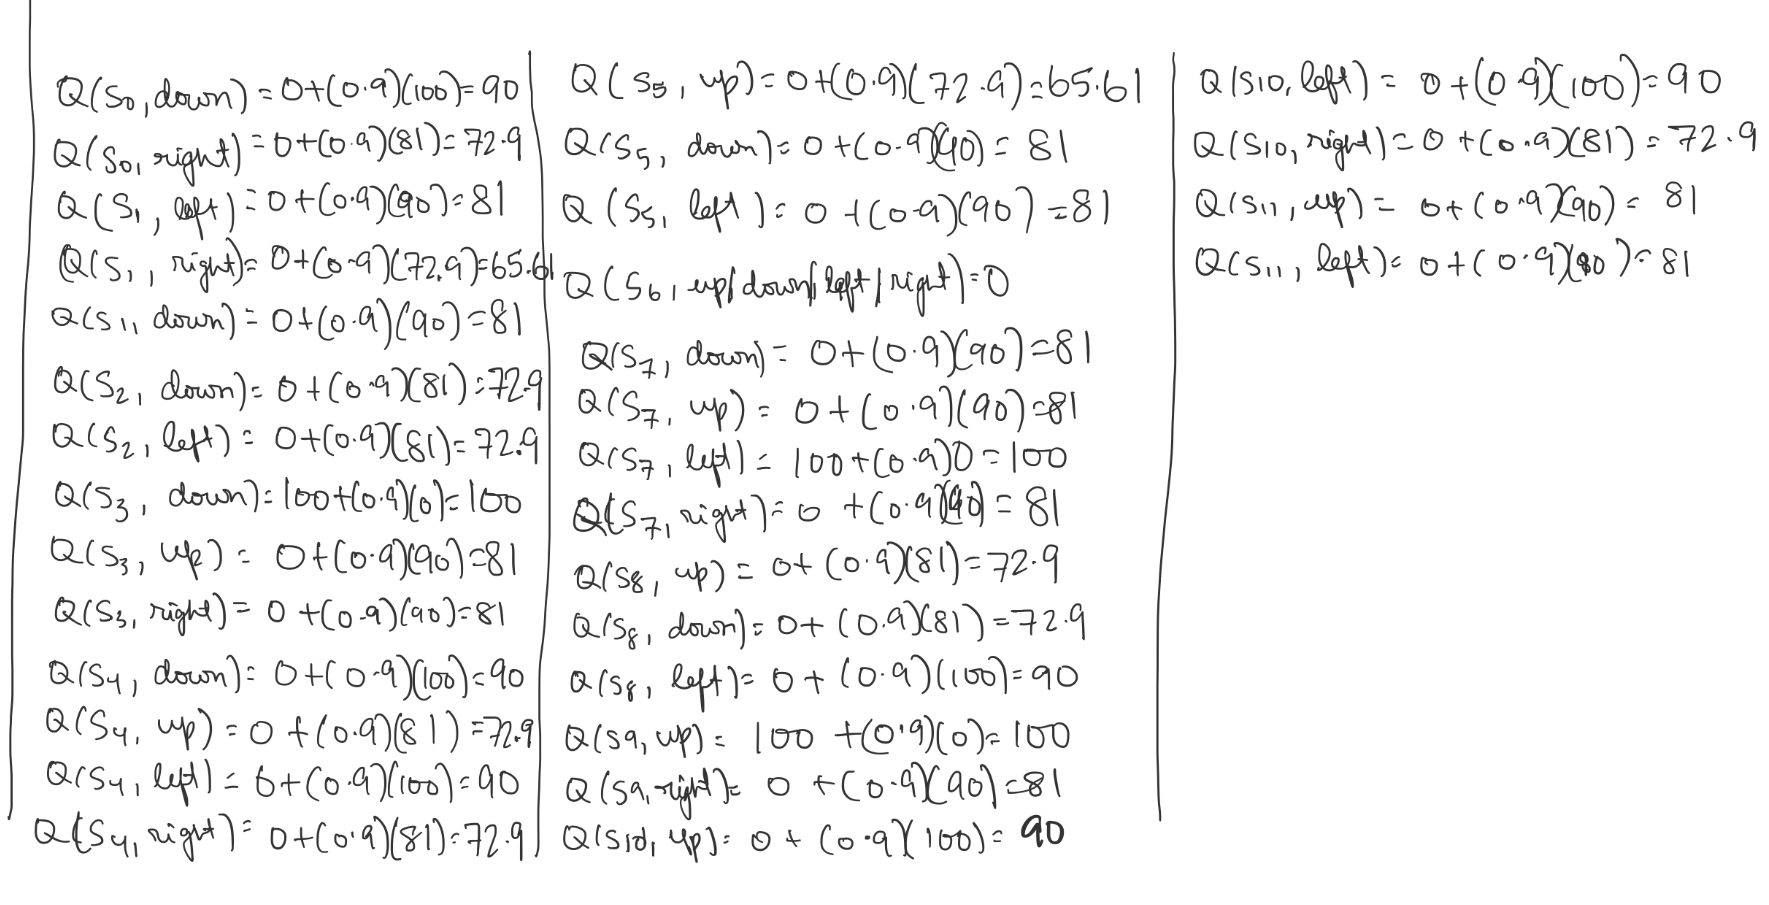 Q(S0, down) = 0+(0.9)(100)= 90
Q(S0, right) = 0+(0.9)(81)= 72.9
Q(S1, left) = 0+(0.9)(90)= 81
Q(S1, right)= 0+(0.9)(72.9)=65.61
Q(S1, down) = 0+(0.9)(90)=81
Q(S2, down)= 0+(0.9)(81)=72.9
Q(S2, left) = 0+(0.9)(81)= 72.9
Q(S3, down)= 100+(0.9)(0)= 100
Q(S3, up) = 0+(0.9)(90)=81
Q(S3, right)= 0+(0.9)(90)=81
Q(S4, down)= 0+(0.9)(100)=90
Q(S4, up) = 0+(0.9)(81)=72.9
Q(S4, left) = 0+(0.9)(100)=90
Q(S4, right)= 0+(0.9)(81)=72.9
Q(S5, up)= 0+(0.9)(72.9)=65.61
Q(S5, down)= 0+(0.9)(90)= 81
Q(S5, left)= 0+(0.9)(90)=81
Q(S6, up/down/left/right)=0
Q(S7, down)= 0+(0.9)(90)=81
Q(S7, up) = 0+(0.9)(90)=81
Q(S7, left) = 100+(0.9)0=100
Q(S7, right)= 0+(0.9)(90)=81
Q(S8, up) = 0+(0.9)(81)=72.9
Q(S8, down)= 0+(0.9)(81)=72.9
Q(S8, left)= 0+(0.9)(100)=90
Q(S9, up)= 100+(0.9)(0)= 100
Q(S9, right)= 0+(0.9)(90)=81
Q(S10, up)= 0+(0.9)(100)= 90
Q(S10, left) = 0+(0.9)(100)= 90
Q(S10, right)= 0+(0.9)(81)= 72.9
Q(S11, up) = 0+(0.9)(90)= 81
Q(S11, left)= 0+(0.9)(90)= 81